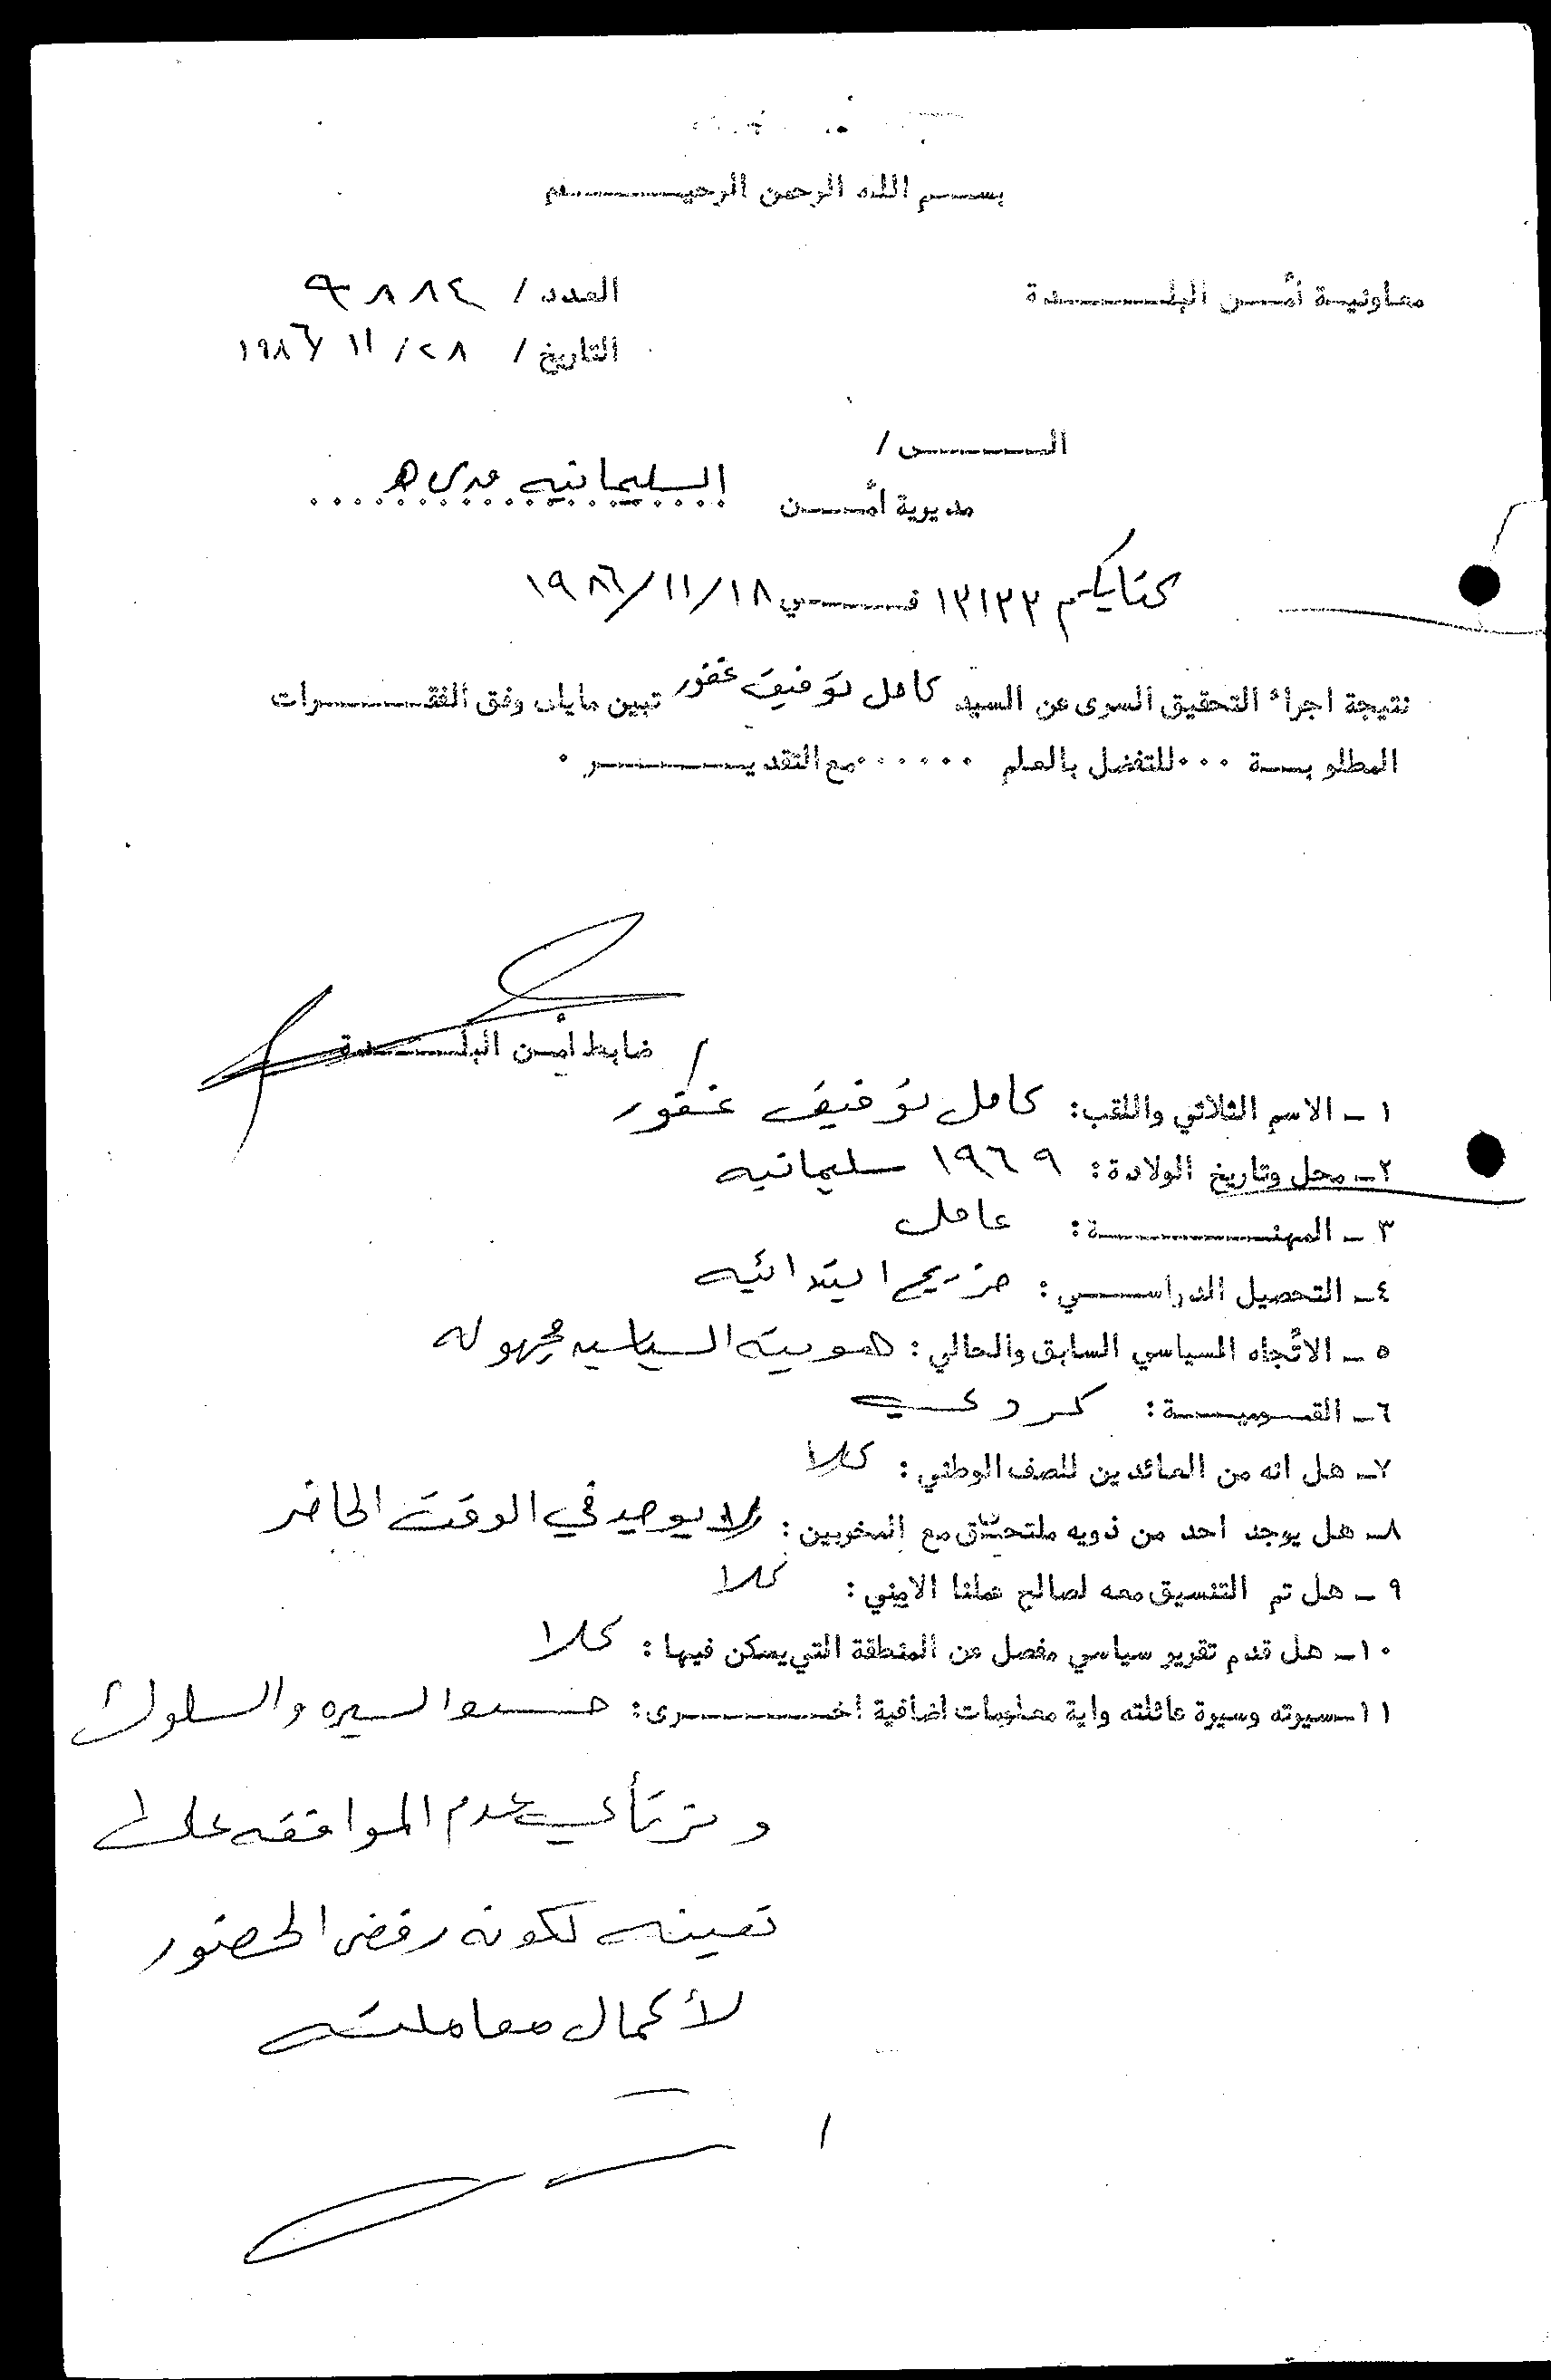 بسم الله الرحمن الرحيم
معاونية أمن البلدة
العدد / ٩٨٨٤
التاريخ / ٢٨ / ١١ / ١٩٨٦
الى /
مديرية أمن السليمانيه
كتابكم ١٣١٢٣ في ١٨/١١/١٩٨٦
نتيجة اجراء التحقيق السرى عن السيد كامل توفيق غفور تبين مايلى وفق الفقرات
المطلوبة ٠٠٠ للتفضل بالعلم ٠٠٠٠٠٠ مع التقدير ٠
ضابط أمن البلدة
١ - الاسم الثلاثي واللقب: كامل توفيق غفور
٢- محل وتاريخ الولادة: ١٩٦٩ سليمانيه
٣ - المهنة: عامل
٤- التحصيل الدراسي: خريج ابتدائيه
٥ - الاتجاه السياسي السابق والحالي: هويته السياسيه مجهوله
٦- القومية: كردي
٧- هل انه من العائدين للصف الوطني: كلا
٨- هل يوجد احد من ذويه ملتحق مع المخربين: لا يوجد في الوقت الحاضر
٩ - هل تم التنسيق معه لصالح عملنا الامني: كلا
١٠- هل قدم تقرير سياسي مفصل عن المنطقة التي يسكن فيها: كلا
١١- سيرته وسيرة عائلته واية معلومات اضافية اخرى: حسنوا السيره والسلوك
ونرتأي عدم الموافقه على
تعينه لكونه رفض الحضور
لأكمال معاملته